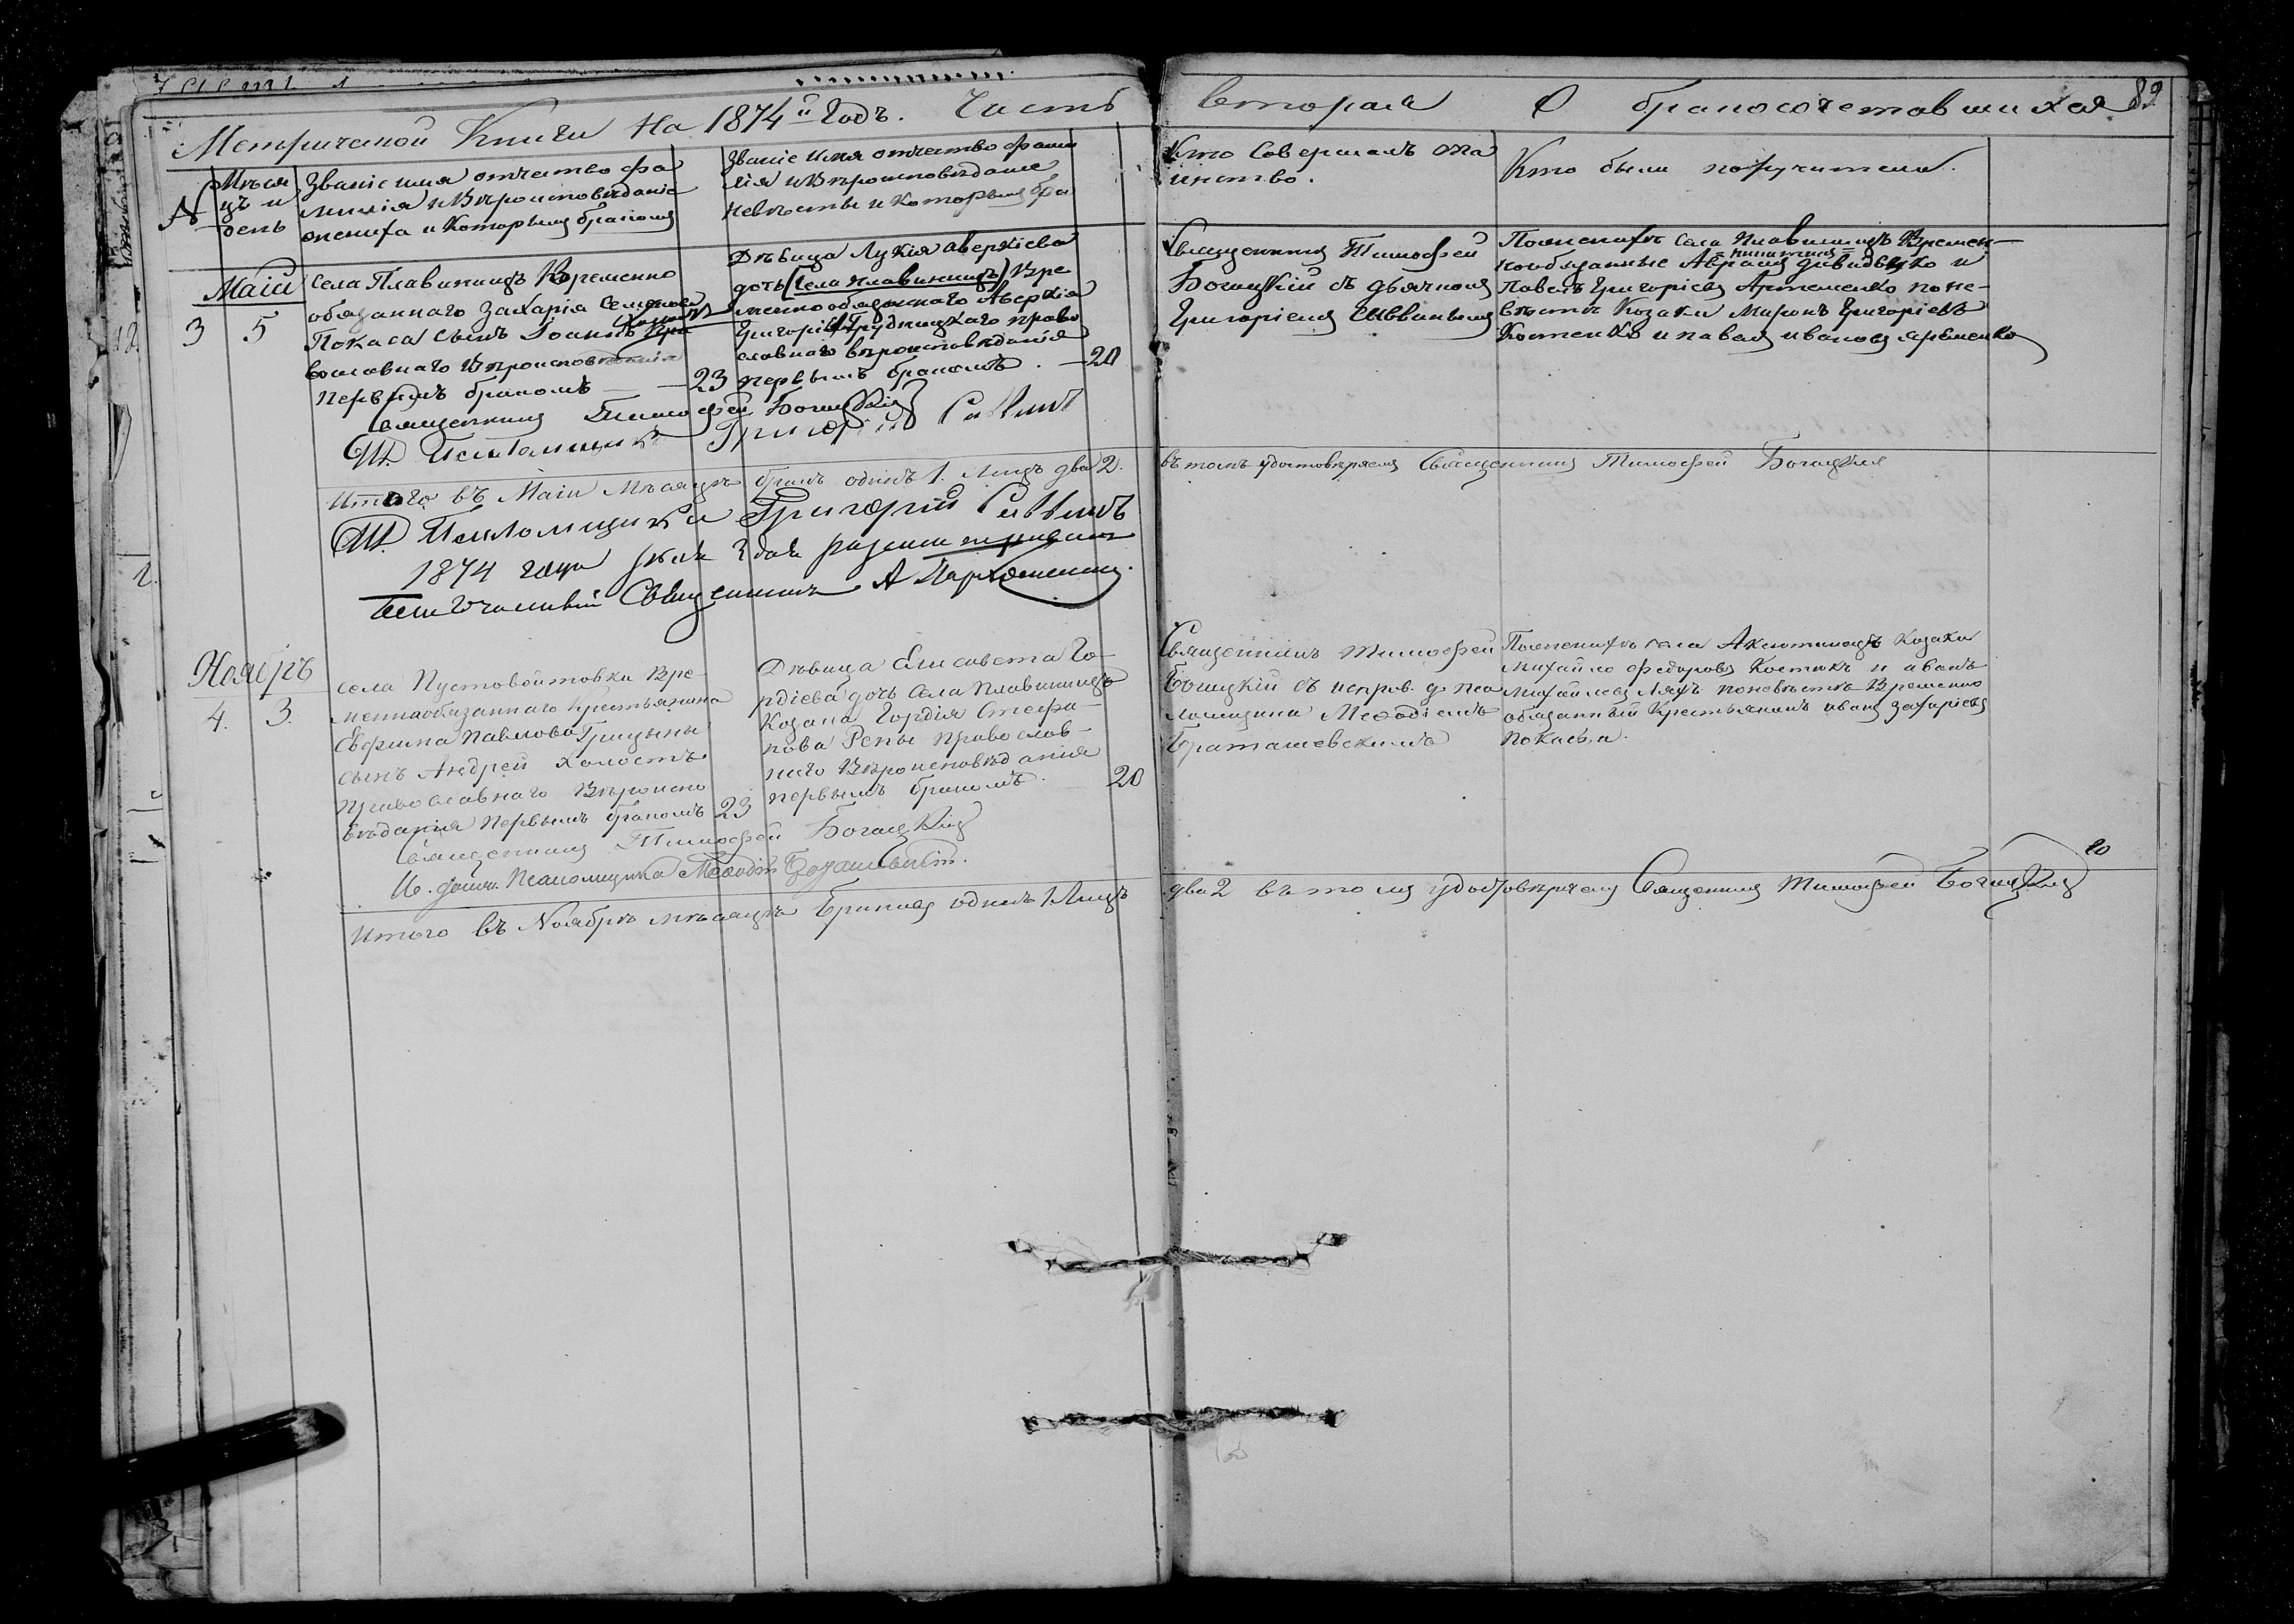 Метрической Книги на 1874й Годъ. Часть вторая О бракосочетавшихся 89
№
Мѣся
цъ и
день
Званіе имя отчество фа
милія и Вѣроисповѣданіе
жениха и Которымъ бракомъ
Званіе имя отчество фами
лія и Вѣроисповѣданіе
невѣсты и Которымъ бра
Кто Совершалъ та
инство.
Кто были поручители.
Маіи
3 5
села Плавинищъ Временно
обязаннаго Захарія Семенова
Покаса сынъ Іоаннъ Пра
вославнаго Вѣроисповѣданія
первымъ бракомъ — 23
Дѣвица Лукія Аверкіева
дочь (села Плавинищъ) Вре
менно обязаннаго Аверкія
Григорі Грудницкаго право
славнаго вѣроисповѣданія
первымъ бракомъ. — 20
Священникъ Тимофей
Богацкій съ дьячкомъ
Григоріемъ Сыввинымъ
По женихѣ села Плавинищъ Времен-
нообязанные Аврамъ Давидѣнко и
Павелъ Григоріевъ Артеменко по не-
вѣстѣ Козаки Миронъ Григоріевъ
Костенко и павелъ ивановъ яременко
Священникъ Тимофей Богацкій
Григорій Саввинъ
Итого въ Маіи Мѣсяцѣ бракъ одинъ 1. Лицъ два 2. въ томъ удостовѣряемъ Священникъ Тимофей Богацкій
Григорій Саввинъ
1874 года
Священникъ А Пархоменко.
Ноябръ
4. 3.
села Пустовойтовки Вре-
меннаобязаннаго Крестьянина
Евфима Павлова Грицыны
сынъ Андрей холостъ
Православнаго Вѣроиспо
вѣданія первымъ бракомъ 23
Дѣвица Елисавета Го-
рдіева дочь села Плавинищъ
Козака Гордія Стефа-
нова Репы православ-
наго Вѣроисповѣданія
первымъ бракомъ. 20
Священникъ Тимофей
Богацкій съ исправ. д. пса
ломщика Меѳодіемъ
Браташевскимъ
По женихѣ села Аксютинецъ Козаки
Михайло Федоровъ Костикъ и иванъ
Михайловъ Ляхъ по невѣстѣ Временно
обязанный Крестьянинъ иванъ захаріевъ
Покаса.
Священникъ Тимофей Богацкій
И. должн. Псаломщика Меѳодій Браташевскій.
Итого въ Ноябрѣ мѣсяцѣ Браковъ одинъ 1 Лицъ два 2 въ томъ удостовѣряемъ Священникъ Тимофей Богацкій